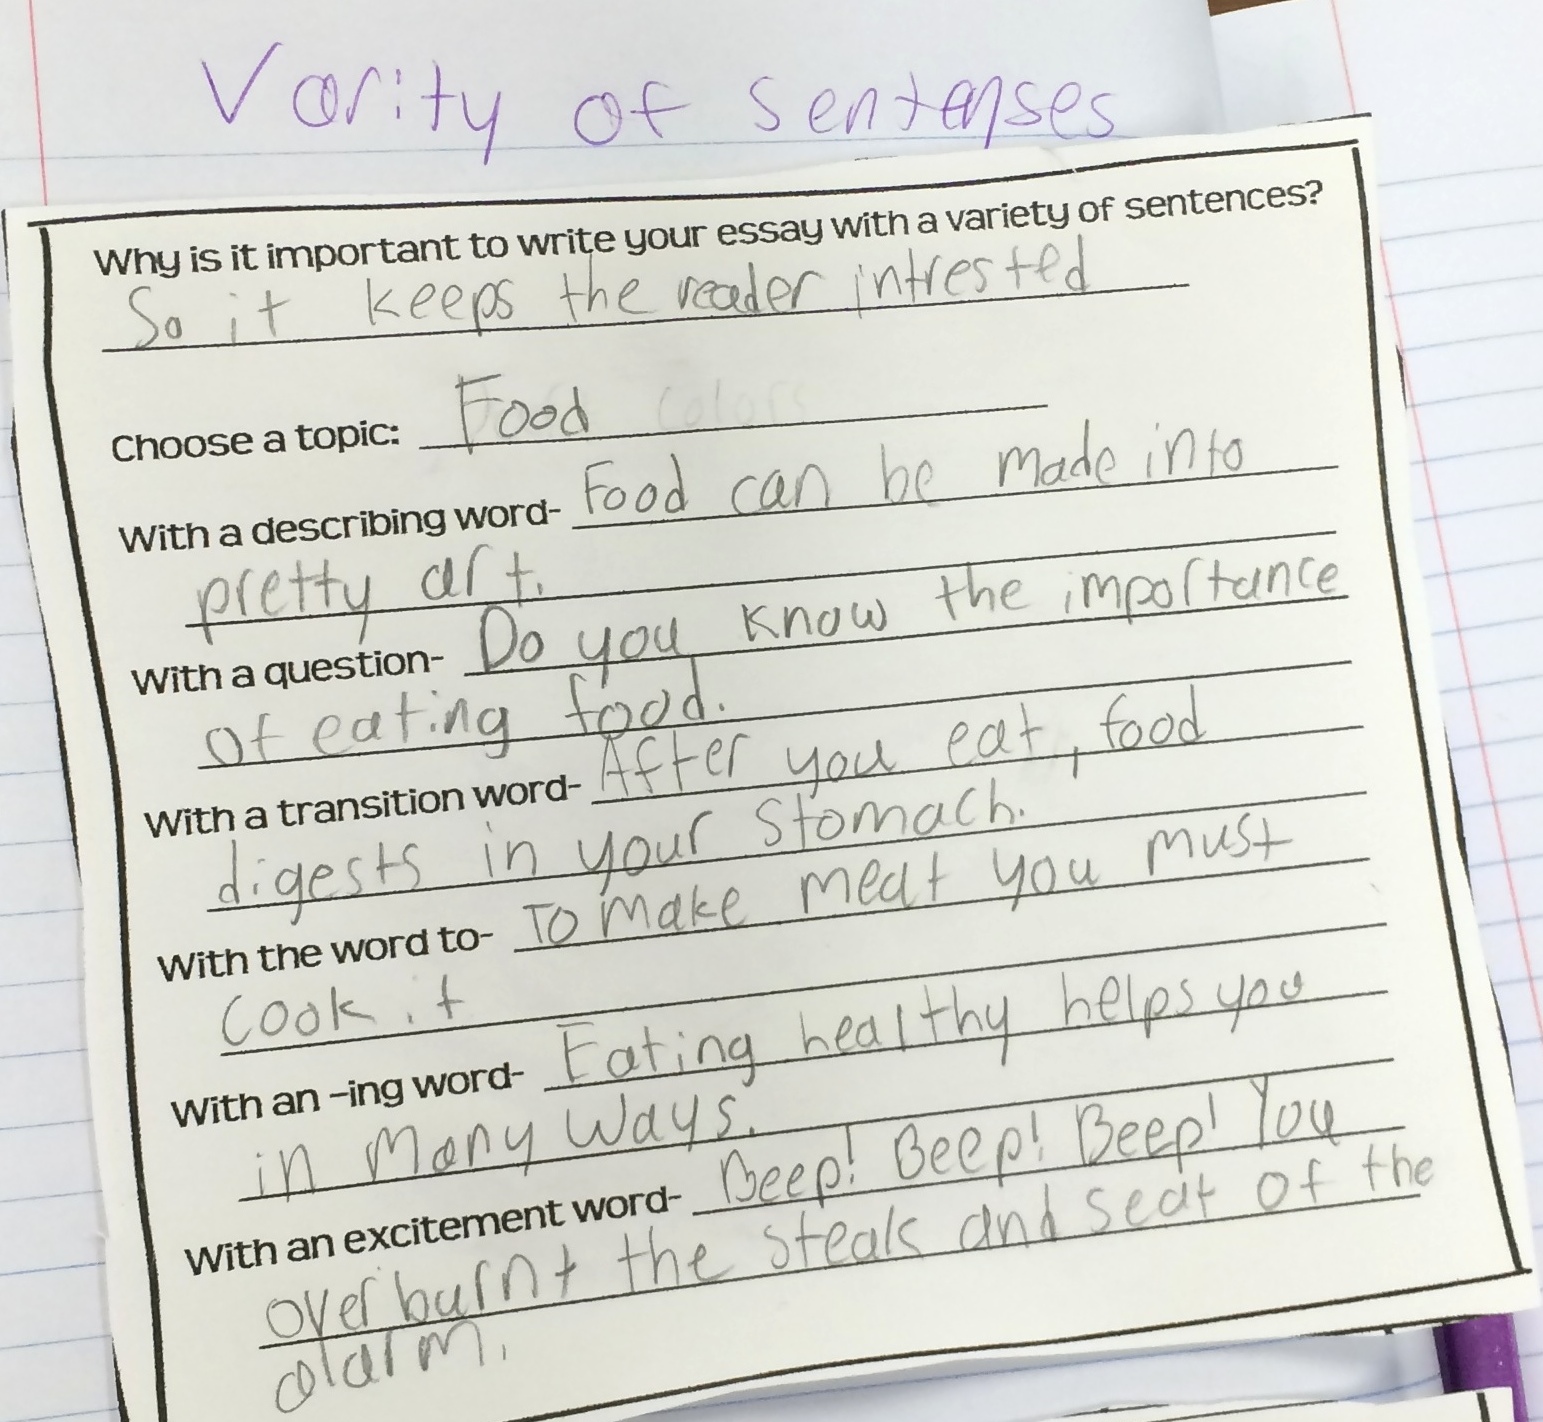 Varity of sentenses
Why is it important to write your essay with a variety of sentences?
So it keeps the reader intrested
Choose a topic: Food colors
With a describing word- Food can be made into
pretty art.
With a question- Do you know the importance
of eating food.
With a transition word- After you eat, food
digests in your stomach.
With the word to- To make meat you must
cook it
With an -ing word- Eating healthy helps you
in many ways.
With an excitement word- Beep! Beep! Beep! You
over burnt the steak and seat of the
alarm.